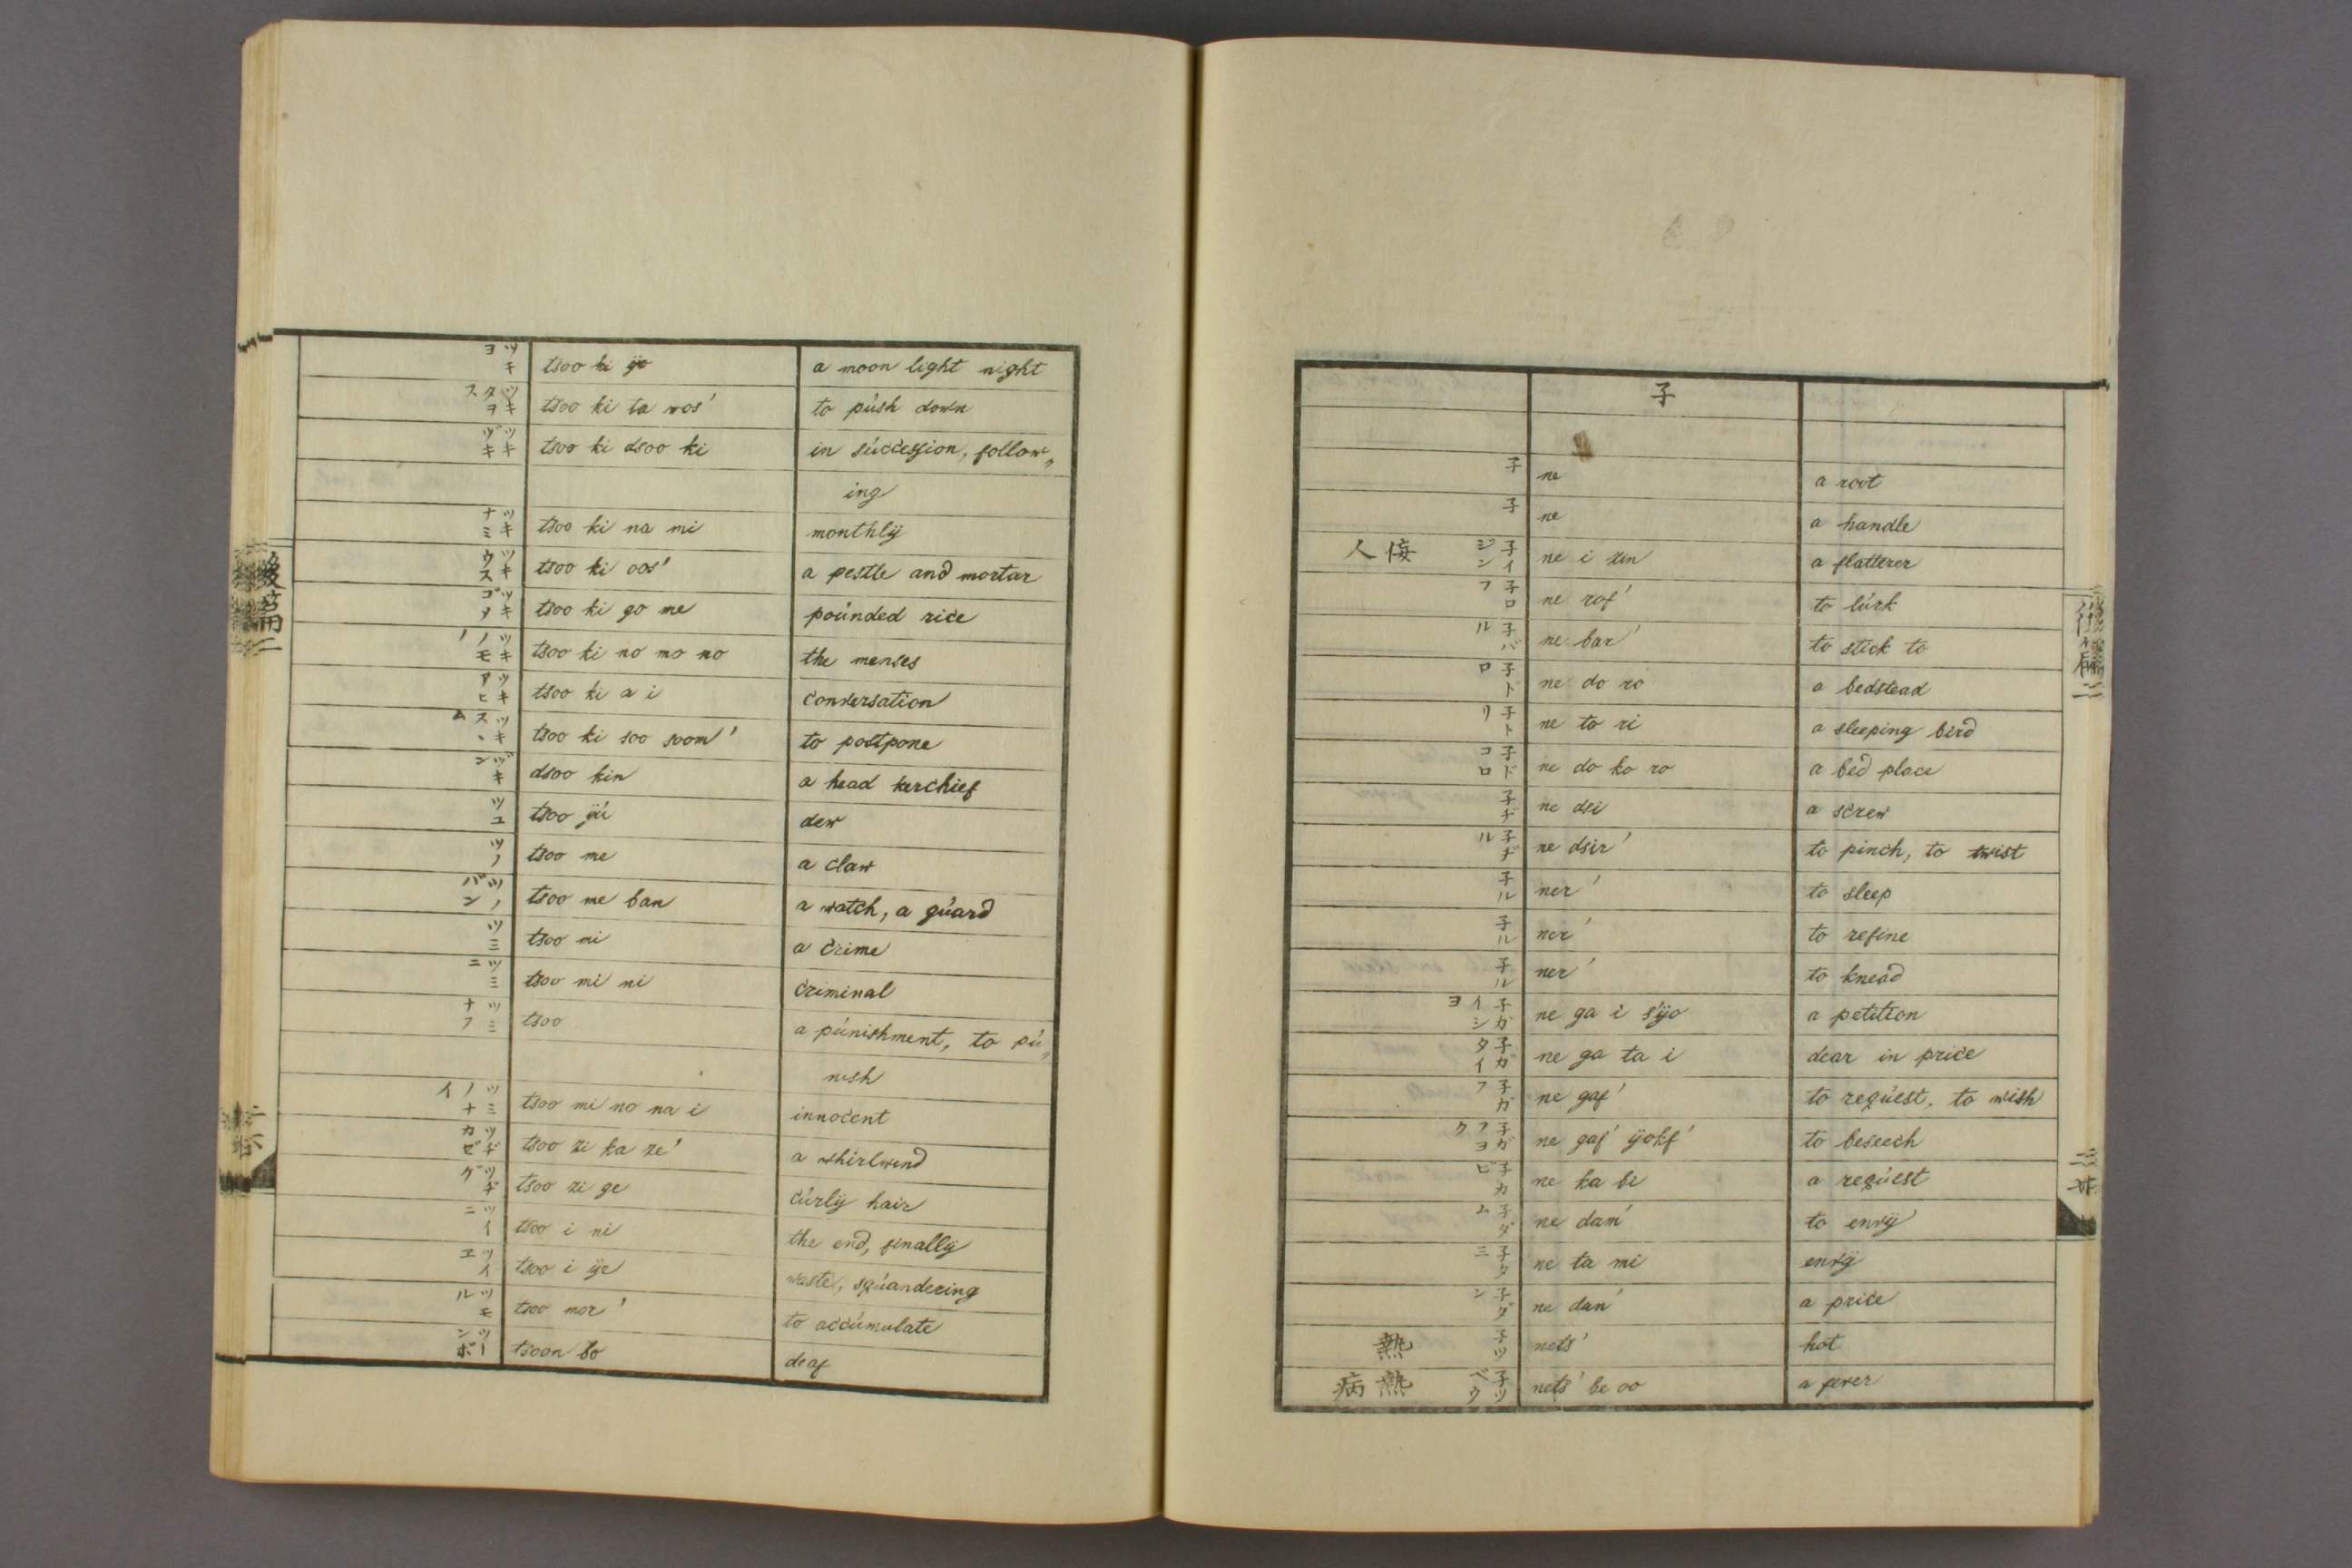 ツキヨ tsoo ki ÿo a moon light night
ツキタヲス tsoo ki ta wos' to púsh down
ツキヅキ tsoo ki dsoo ki in súccession, follow„
ing
ツキナミ tsoo ki na mi monthlÿ
ツキウス tsoo ki oos' a pestle and mortar
ツキゴメ tsoo ki go me poúnded rice
ツキノモノ tsoo ki no mo no the menses
ツキアヒ tsoo ki a i conversation
ツキスヽム tsoo ki soo soom' to postpone
ヅキン dsoo kin a head kerchief
ツユ tsoo ÿú dew
ツメ tsoo me a claw
ツメバン tsoo me ban a watch, a gúard
ツミ tsoo mi a crime
ツミニ tsoo mi ni criminal
ツミナフ tsoo a púnishment, to pú„
nish
ツミノナイ tsoo mi no na i innocent
ツヂカゼ tsoo zi ka ze' a whirlwind
ツヂゲ tsoo zi ge cúrlÿ hair
ツイニ tsoo i ni the end, finallÿ
ツイエ tsoo i ÿe waste, sqúandering
ツモル tsoo mor' to accúmulate
ツンボ tsoon bo deaf
後篇
子
子 ne a root
子 ne a handle
子イジン 人侫 ne i zin a flatterer
子ロフ ne rof' to lúrk
子バル ne bar' to stick to
子ドロ ne do ro a bedstead
子トリ ne to ri a sleeping bird
子ドコロ ne do ko ro a bed place
子ヂ ne dsi a screw
子ヂル ne dsir' to pinch, to twist
子ル ner' to sleep
子ル ner' to refine
子ル ner' to knead
子ガイシヨ ne ga i s'ÿo a petition
子ガタイ ne ga ta i dear in price
子ガフ ne gaf' to reqúest, to wish
子ガフヨク ne gaf' ÿokf' to beseech
子カビ ne ka bi a reqúest
子ダム ne dam' to envÿ
子タミ ne ta mi envÿ
子ダン ne dan' a price
子ツ 熱 nets' hot
子ツベウ 病熱 nets' be oo a fever